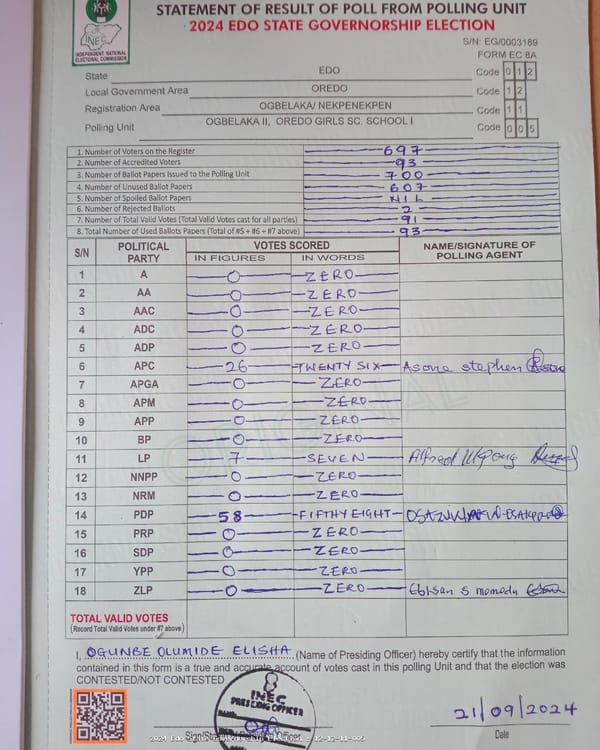 STATEMENT OF RESULT OF POLL FROM POLLING UNIT
2024 EDO STATE GOVERNORSHIP ELECTION
INEC
INDEPENDENT NATIONAL
ELECTORAL COMMISSION
S/N: EG/0003189
FORM EC 8A
State EDO Code 0 1 2
Local Government Area OREDO Code 1 2
Registration Area OGBELAKA/ NEKPENEKPEN Code 1 1
Polling Unit OGBELAKA II, OREDO GIRLS SC. SCHOOL I Code 0 0 5
1. Number of Voters on the Register 697
2. Number of Accredited Voters 93
3. Number of Ballot Papers Issued to the Polling Unit 700
4. Number of Unused Ballot Papers 607
5. Number of Spoiled Ballot Papers NIL
6. Number of Rejected Ballots 2
7. Number of Total Valid Votes (Total Valid Votes cast for all parties) 91
8. Total Number of Used Ballots Papers (Total of #5 + #6 + #7 above) 93
S/N POLITICAL PARTY VOTES SCORED NAME/SIGNATURE OF POLLING AGENT
IN FIGURES IN WORDS
1 A 0 ZERO
2 AA 0 ZERO
3 AAC 0 ZERO
4 ADC 0 ZERO
5 ADP 0 ZERO
6 APC 26 TWENTY SIX Asone stephen
7 APGA 0 ZERO
8 APM 0 ZERO
9 APP 0 ZERO
10 BP 0 ZERO
11 LP 7 SEVEN Alfred
12 NNPP 0 ZERO
13 NRM 0 ZERO
14 PDP 58 FIFTHY EIGHT
15 PRP 0 ZERO
16 SDP 0 ZERO
17 YPP 0 ZERO
18 ZLP 0 ZERO S momodu
ORIGINAL
TOTAL VALID VOTES
(Record Total Valid Votes under #7 above)
I, OGUNBE OLUMIDE ELISHA (Name of Presiding Officer) hereby certify that the information
contained in this form is a true and accurate account of votes cast in this polling Unit and that the election was
CONTESTED/NOT CONTESTED
INEC
PRESIDING OFFICER
21/09/2024
Date